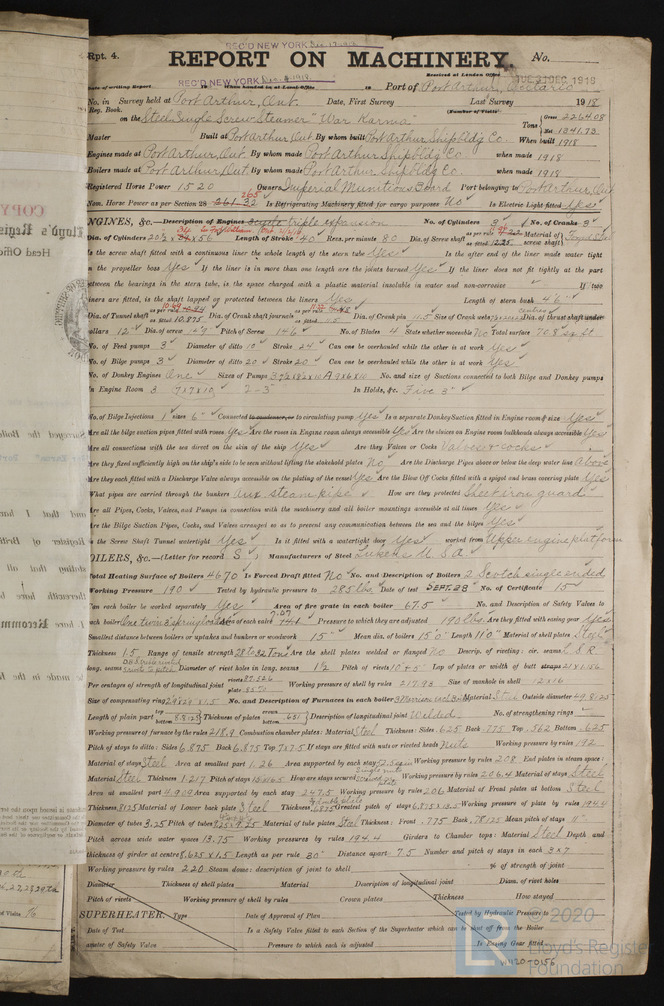 Rpt. 4.
REC'D NEW YORK Dec. 17 1918
REPORT ON MACHINERY. No.
REC'D NEW YORK Dec. 1918
Received at London Office TUE. 31 DEC. 1918
Date of writing Report 19 When handed in at Local Office 19 Port of Port Arthur, Ontario
No. in Survey held at Port Arthur, Ont. Date, First Survey Last Survey 1918
Reg. Book. (Number of Visits)
on the Steel Single Screw Steamer "War Karma" Tons Gross 2264.08 Net 1341.73
Master Built at Port Arthur, Ont By whom built Port Arthur Shipbldg Co. When built 1918
Engines made at Port Arthur, Ont By whom made Port Arthur Shipbldg Co when made 1918
Boilers made at Port Arthur, Ont By whom made Port Arthur Shipbldg Co. when made 1918
Registered Horse Power 1520 Owners Imperial Munitions Board Port belonging to Port Arthur, Ont
Nom. Horse Power as per Section 28 265 Is Refrigerating Machinery fitted for cargo purposes No Is Electric Light fitted Yes
ENGINES, &c.—Description of Engines triple expansion No. of Cylinders 3 No. of Cranks 3
Dia. of Cylinders 20½ x x 56 Length of Stroke 40 Revs. per minute 80 Dia. of Screw shaft as per rule as fitted 12.25 Material of screw shaft
Is the screw shaft fitted with a continuous liner the whole length of the stern tube Yes Is the after end of the liner made water tight
in the propeller boss Yes If the liner is in more than one length are the joints burned Yes If the liner does not fit tightly at the part
between the bearings in the stern tube, is the space charged with a plastic material insoluble in water and non-corrosive " If two
liners are fitted, is the shaft lapped or protected between the liners Yes Length of stern bush 4'6"
Dia. of Tunnel shaft as per rule as fitted 10.875 Dia. of Crank shaft journals as per rule as fitted Dia. of Crank pin 11.5 Size of Crank webs Dia. of thrust shaft under
collars 12" Dia. of screw 14'9" Pitch of Screw 14'6" No. of Blades 4 State whether moveable No Total surface 70.8 sq ft
No. of Feed pumps 3 Diameter of ditto 10 Stroke 24 Can one be overhauled while the other is at work Yes
No. of Bilge pumps 3 Diameter of ditto 20 Stroke 20 Can one be overhauled while the other is at work Yes
No. of Donkey Engines One Sizes of Pumps No. and size of Suctions connected to both Bilge and Donkey pumps
In Engine Room 3 2-3" In Holds, &c. Five 3"
No. of Bilge Injections 1 sizes 6" Connected to condenser, or to circulating pump Yes Is a separate Donkey Suction fitted in Engine room & size Yes
Are all the bilge suction pipes fitted with roses Yes Are the roses in Engine room always accessible Yes Are the sluices on Engine room bulkheads always accessible Yes
Are all connections with the sea direct on the skin of the ship Yes Are they Valves or Cocks Valves & cocks
Are they fixed sufficiently high on the ship's side to be seen without lifting the stokehold plates No Are the Discharge Pipes above or below the deep water line Above
Are they each fitted with a Discharge Valve always accessible on the plating of the vessel Yes Are the Blow Off Cocks fitted with a spigot and brass covering plate Yes
What pipes are carried through the bunkers aux steam pipe How are they protected Sheet iron guard
Are all Pipes, Cocks, Valves, and Pumps in connection with the machinery and all boiler mountings accessible at all times Yes
Are the Bilge Suction Pipes, Cocks, and Valves arranged so as to prevent any communication between the sea and the bilges Yes
Is the Screw Shaft Tunnel watertight Yes Is it fitted with a watertight door Yes worked from Upper engine platform
BOILERS, &c.—(Letter for record S) Manufacturers of Steel Lukens U.S.A.
Total Heating Surface of Boilers 4670 Is Forced Draft fitted No No. and Description of Boilers 2 Scotch single ended
Working Pressure 190 Tested by hydraulic pressure to 285 lbs. Date of test SEPT. 28 No. of Certificate 15
Can each boiler be worked separately Yes Area of fire grate in each boiler 67.5 No. and Description of Safety Valves to
each boiler One twin spring loaded Area of each valve 7.07 Pressure to which they are adjusted 190 lbs. Are they fitted with easing gear Yes
Smallest distance between boilers or uptakes and bunkers or woodwork 15" Mean dia. of boilers 15'0" Length 11'0" Material of shell plates Steel
Thickness 1.5 Range of tensile strength 28 to 32 Tons Are the shell plates welded or flanged No Descrip. of riveting: cir. seams L & R
long. seams Diameter of rivet holes in long. seams 1½ Pitch of rivets Lap of plates or width of butt straps
Per centages of strength of longitudinal joint rivets 87.526 plate 85 % Working pressure of shell by rules 217.93 Size of manhole in shell 12x16
Size of compensating ring No. and Description of Furnaces in each boiler 3 Morrison Material Steel Outside diameter 49.8125
Length of plain part top bottom 8.8125 Thickness of plates crown bottom .651 Description of longitudinal joint Welded No. of strengthening rings
Working pressure of furnace by the rules 218.9 Combustion chamber plates: Material Steel Thickness: Sides .625 Back .775 Top .562 Bottom .625
Pitch of stays to ditto: Sides 6.875 Back 6.875 Top 7x7.5 If stays are fitted with nuts or riveted heads Nuts Working pressure by rules 192
Material of stays Steel Area at smallest part 1.26 Area supported by each stay Working pressure by rules 208 End plates in steam space:
Material Steel Thickness 1.217 Pitch of stays How are stays secured Working pressure by rules 206.4 Material of stays Steel
Area at smallest part 4.909 Area supported by each stay 247.5 Working pressure by rules 206 Material of Front plates at bottom Steel
Thickness .8125 Material of Lower back plate Steel Thickness Greatest pitch of stays Working pressure of plate by rules 194.4
Diameter of tubes 3.25 Pitch of tubes Material of tube plates Steel Thickness: Front .775 Back .78125 Mean pitch of stays 11"
Pitch across wide water spaces 13.75 Working pressures by rules 194.4 Girders to Chamber tops: Material Steel Depth and
thickness of girder at centre 8.625 x 1.5 Length as per rule 30" Distance apart 7.5 Number and pitch of stays in each 3x7
Working pressure by rules 220 Steam dome: description of joint to shell % of strength of joint
Diameter Thickness of shell plates Material Description of longitudinal joint Diam. of rivet holes
Pitch of rivets Working pressure of shell by rules Crown plates Thickness How stayed
SUPERHEATER. Type Date of Approval of Plan Tested by Hydraulic Pressure to
Date of Test Is a Safety Valve fitted to each Section of the Superheater which can be shut off from the Boiler
Diameter of Safety Valve Pressure to which each is adjusted Is Easing Gear fitted
© 2020
LR
Lloyd's Register
Foundation